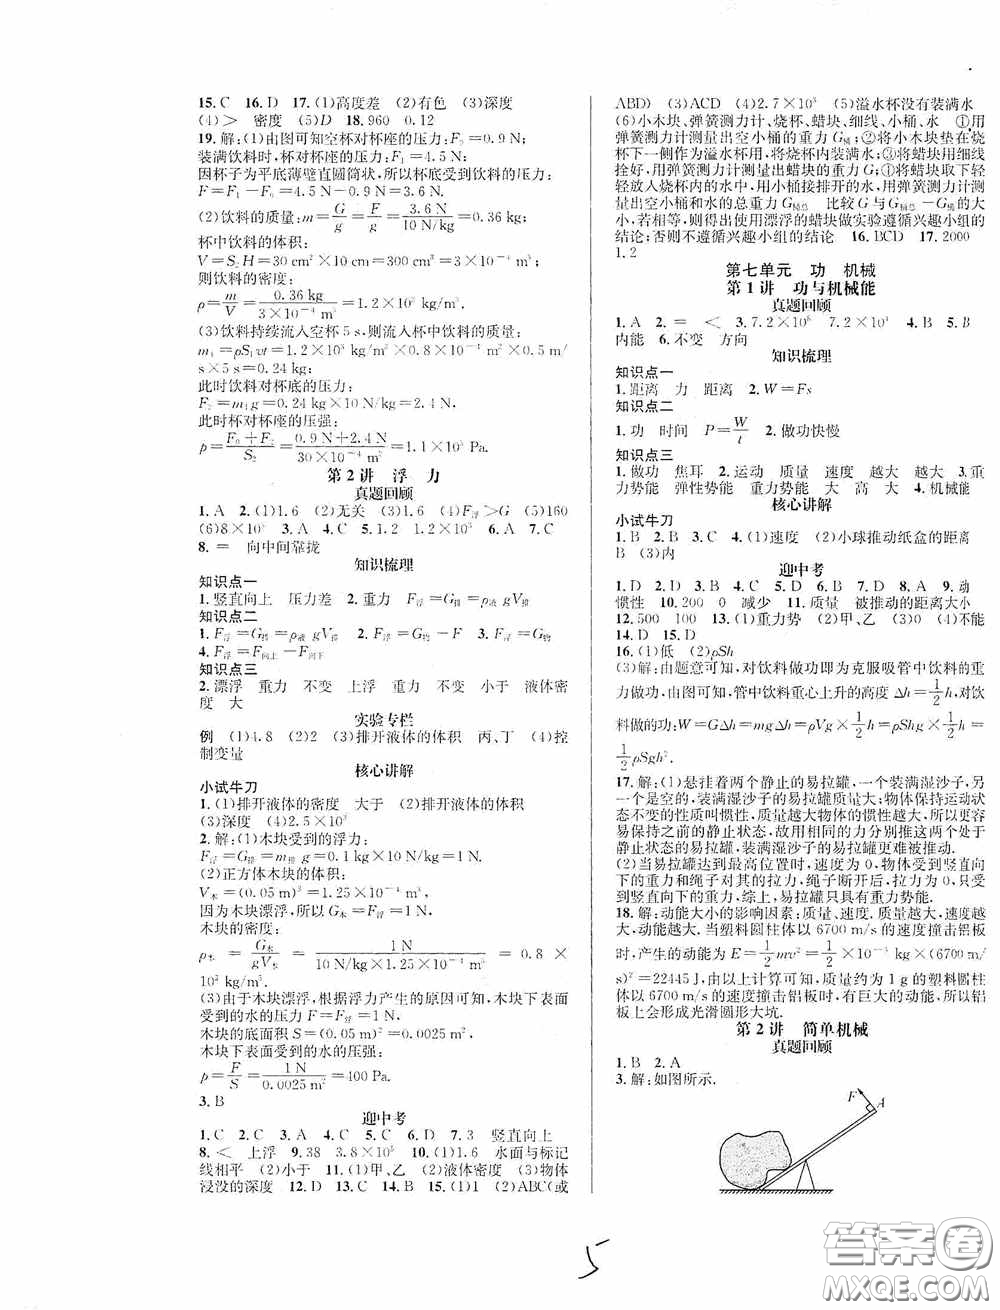 15. C 16. D 17. (1)高度差 (2)有色 (3)深度
(4)> 密度 (5)D 18. 960 0.12
19. 解:(1)由图可知空杯对杯座的压力:F₀=0.9 N;
装满饮料时,杯对杯座的压力:F₁=4.5 N;
因杯子为平底薄壁直圆筒状,所以杯底受到饮料的压力:
F=F₁-F₀=4.5 N-0.9 N=3.6 N.
(2)饮料的质量:m=G/g=F/g=3.6 N/10 N/kg=0.36 kg;
杯中饮料的体积:
V=S₂H=30 cm²×10 cm=300 cm³=3×10⁻⁴ m³;
则饮料的密度:
ρ=m/V=0.36 kg/3×10⁻⁴ m³=1.2×10³ kg/m³.
(3)饮料持续流入空杯5 s,则流入杯中饮料的质量:
m₁=ρS₁vt=1.2×10³ kg/m³×0.8×10⁻⁴ m²× m/
s×5 s=0.24 kg;
此时饮料对杯底的压力:
F₂=m₁g=0.24 kg×10 N/kg=2.4 N.
此时杯对杯座的压强:
ρ=F₀+F₂/S₂=0.9 N+2.4 N/30×10⁻⁴ m²=1.1×10³ Pa.
第 2 讲 浮 力
真题回顾
1. A 2. (1)1.6 (2)无关 (3)1.6 (4)F浮>G (5)160
(6)8×10² 3. A 4. C 5. 1.2 1.2×10³ 6. A 7. C
8. = 向中间靠拢
知识梳理
知识点一
1. 竖直向上 压力差 2. 重力 F浮=G排=ρ液 gV排
知识点二
1. F浮=G排=ρ液 gV排 2. F浮=G物-F 3. F浮=G物
4. F浮=F向上-F向下
知识点三
2. 漂浮 重力 不变 上浮 重力 不变 小于 液体密
度 大
实验专栏
例 (1)4.8 (2)2 (3)排开液体的体积 丙、丁 (4)控
制变量
核心讲解
小试牛刀
1. (1)排开液体的密度 大于 (2)排开液体的体积
(3)深度 (4)2.5×10³
2. 解:(1)木块受到的浮力:
F浮=G排=m排g=0.1 kg×10 N/kg=1 N.
(2)正方体木块的体积:
V木=(0.05 m)³=1.25×10⁻⁴ m³;
因为木块漂浮,所以 G木=F浮=1 N;
木块的密度:
ρ木=G木/gV木=1 N/10 N/kg×1.25×10⁻⁴ m³=0.8×
10³ kg/m³.
(3)由于木块漂浮,根据浮力产生的原因可知,木块下表面
受到的水的压力 F=F浮=1 N;
木块的底面积 S=(0.05 m)²=0.0025 m²;
木块下表面受到的水的压强:
ρ=F/S=1 N/0.0025 m²=400 Pa.
3. B
迎中考
1. C 2. C 3. A 4. C 5. C 6. D 7. 3 竖直向上
8. < 上浮 9. 38 3.8×10³ 10. (1)1.6 水面与标记
线相平 (2)小于 11. (1)甲、乙 (2)液体密度 (3)物体
浸没的深度 12. D 13. C 14. B 15. (1)1 (2)ABC(或
ABD) (3)ACD (4)2.7×10³ (5)溢水杯没有装满水
(6)小木块、弹簧测力计、烧杯、蜡块、细线、小桶、水 ①用
弹簧测力计测量出空小桶的重力 G桶;②将小木块垫在烧
杯下一侧作为溢水杯用,将烧杯内装满水;③将蜡块用细线
拴好,用弹簧测力计测量出蜡块的重力 G;④将蜡块取下轻
轻放入烧杯内的水中,用小桶接排开的水,用弹簧测力计测
量出空小桶和水的总重力 G桶总 比较 G 与 G桶总-G桶的大
小,若相等,则得出使用漂浮的蜡块做实验遵循兴趣小组的
结论;否则不遵循兴趣小组的结论 16. BCD 17. 2000
1.2
第七单元 功 机械
第 1 讲 功与机械能
真题回顾
1. A 2. = < 3. 7.2×10⁵ 7.2×10⁴ 4. B 5. B
内能 6. 不变 方向
知识梳理
知识点一
1. 距离 力 距离 2. W=Fs
知识点二
1. 功 时间 P=W/t 2. 做功快慢
知识点三
1. 做功 焦耳 2. 运动 质量 速度 越大 越大 3. 重
力势能 弹性势能 重力势能 大 高 大 4. 机械能
核心讲解
小试牛刀
1. B 2. C 3. C 4. (1)速度 (2)小球推动纸盒的距离
B (3)内
迎中考
1. D 2. D 3. B 4. C 5. D 6. B 7. D 8. A 9. 动
惯性 10. 200 0 减少 11. 质量 被推动的距离大小
12. 500 100 13. (1)重力势 (2)甲、乙 (3)0 (4)不能
14. D 15. D
16. (1)低 (2)ρSh
(3)解:由题意可知,对饮料做功即为克服吸管中饮料的重
力做功,由图可知,管中饮料重心上升的高度 Δh=1/2 h,对饮
料做的功:W=GΔh=mgΔh=ρVg×1/2 h=ρShg×1/2 h=
1/2 ρSgh².
17. 解:(1)悬挂着两个静止的易拉罐,一个装满湿沙子,另
一个是空的,装满湿沙子的易拉罐质量大;物体保持运动状
态不变的性质叫惯性,质量越大物体的惯性越大,所以更容
易保持之前的静止状态,故用相同的力分别推这两个处于
静止状态的易拉罐,装满湿沙子的易拉罐更难被推动.
(2)当易拉罐达到最高位置时,速度为 0,物体受到竖直向
下的重力和绳子对其的拉力,绳子断开后,拉力为 0,只受
到竖直向下的重力,综上,易拉罐只具有重力势能.
18. 解:动能大小的影响因素:质量、速度.质量越大,速度越
大,动能越大.当塑料圆柱体以 6700 m/s 的速度撞击铝板
时,产生的动能为 E=1/2 mv²=1/2×10⁻³ kg×(6700 m/
s)²=22445 J,由以上计算可知,质量约为 1 g 的塑料圆柱
体以 6700 m/s 的速度撞击铝板时,有巨大的动能,所以铝
板上会形成光滑圆形大坑.
第 2 讲 简单机械
真题回顾
1. B 2. A
3. 解:如图所示.
F A
5
答案圈
MXQE.COM